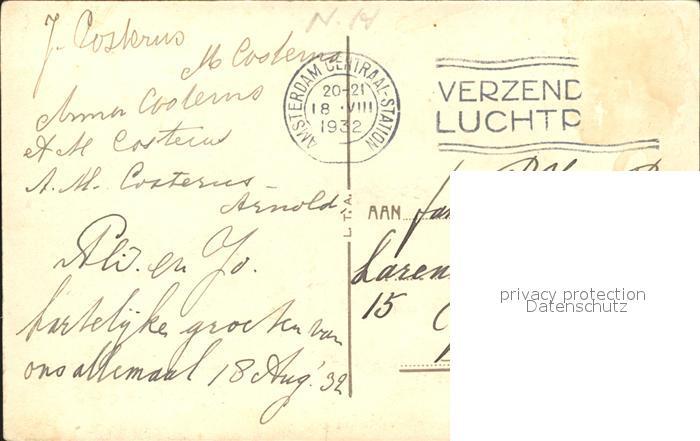 N. H
J. Costerus
M Costerus
Anna Costerus
A M Costerus
A. M. Costerus -
Arnold
Ali. en Jo.
hartelijke groeten van
ons allemaal 18 Aug. '32
AMSTERDAM CENTRAAL-STATION
20-21
18 ·VIII
1932
VERZEND
LUCHTP
L.T.A.
AAN
Laren
15
privacy protection
Datenschutz